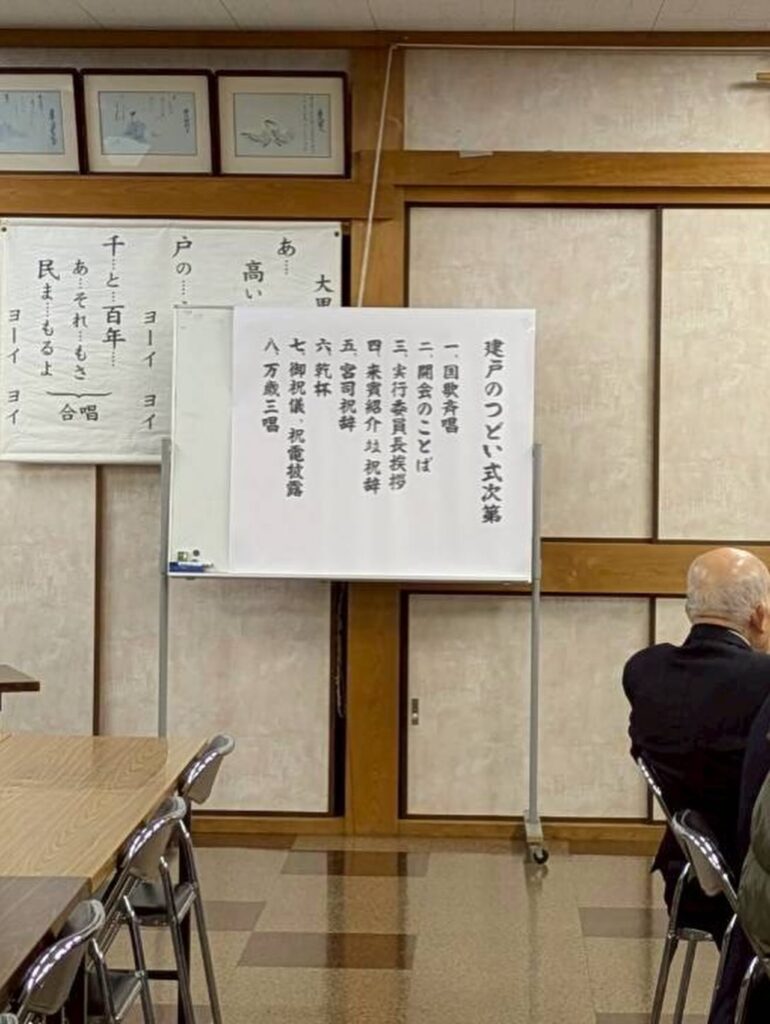 建戸のつどい式次第
一、国歌斉唱
二、開会のことば
三、実行委員長挨拶
四、来賓紹介 竝 祝辞
五、宮司祝辞
六、乾杯
七、御祝儀、祝電披露
八、万歳三唱
大
あ……
高い
戸の……
ヨーイ ヨイ
千…と…百年…
あ…それ…もさ
民ま…もるよ
合唱
ヨーイ ヨイ